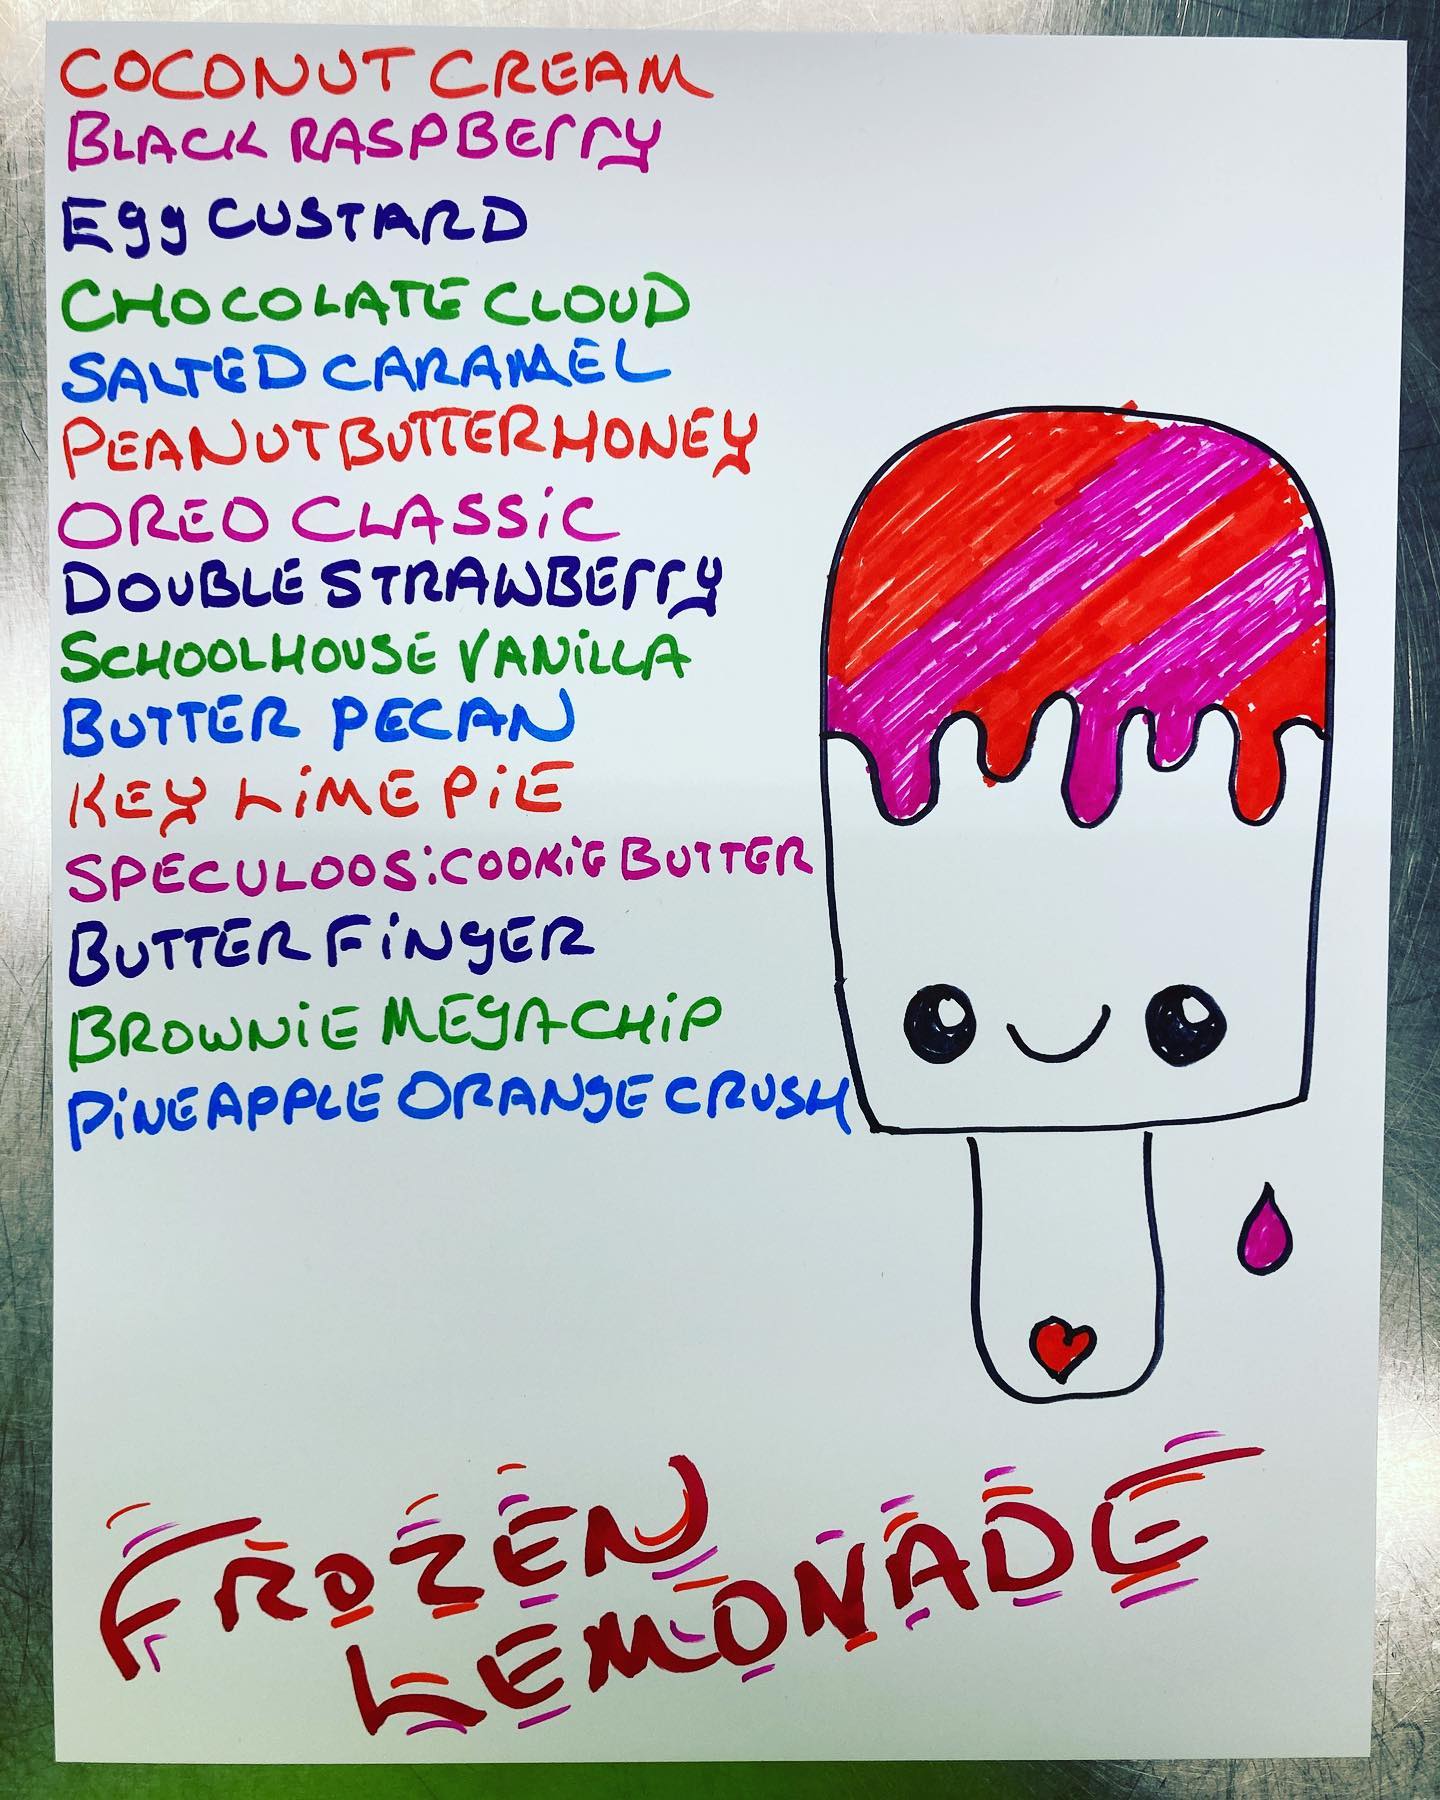 COCONUT CREAM
BLACK RASPBERRY
EGG CUSTARD
CHOCOLATE CLOUD
SALTED CARAMEL
PEANUT BUTTER HONEY
OREO CLASSIC
DOUBLE STRAWBERRY
SCHOOLHOUSE VANILLA
BUTTER PECAN
KEY LIME PIE
SPECULOOS:COOKIE BUTTER
BUTTER FINGER
BROWNIE MEGA CHIP
PINEAPPLE ORANGE CRUSH
FROZEN
LEMONADE